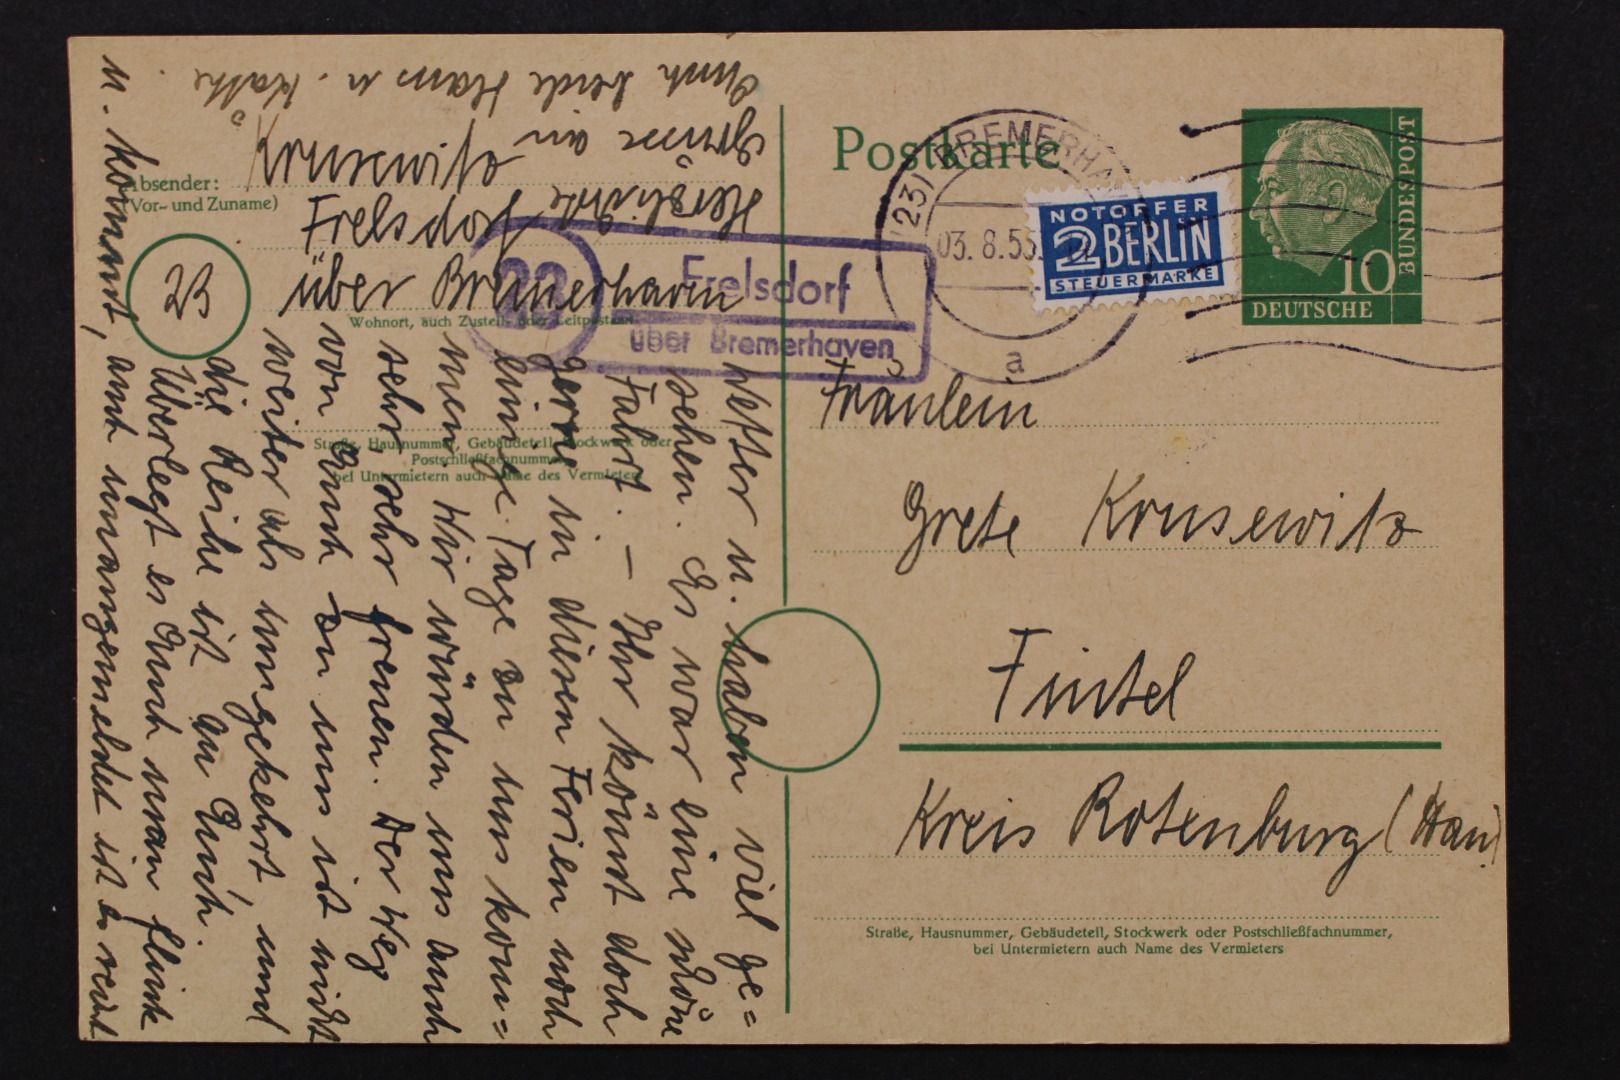 Postkarte
(23) BREMERHA
03.8.55
a
NOTOPFER
2 BERLIN
STEUERMARKE
10
DEUTSCHE
BUNDESPOST
Absender:
(Vor- und Zuname)
Krusewitz
Frelsdorf
über Bremerhaven
23
Wohnort, auch Zustell- oder Leitpostamt
Straße, Hausnummer, Gebäudeteil, Stockwerk oder
Postschließfachnummer,
bei Untermietern auch Name des Vermieters
23
Frelsdorf
über Bremerhaven
Fräulein
Grete Krusewitz
Fintel
Kreis Rotenburg (Han)
Straße, Hausnummer, Gebäudeteil, Stockwerk oder Postschließfachnummer,
bei Untermietern auch Name des Vermieters
Wetter u. haben viel ge=
sehen. Es war eine schöne
Fahrt. – Ihr könnt doch
gerne in diesen Ferien noch
einige Tage zu uns kom=
men. Wir würden uns auch
sehr sehr freuen. Der Weg
von Euch zu uns ist nicht
weiter als umgekehrt, und
die Reihe ist an Euch.
Überlegt es Euch man flink
u. kommt, auch unangemeldet ist es recht
Herzliche
Grüsse an
Euch beide Hans u. Käthe.